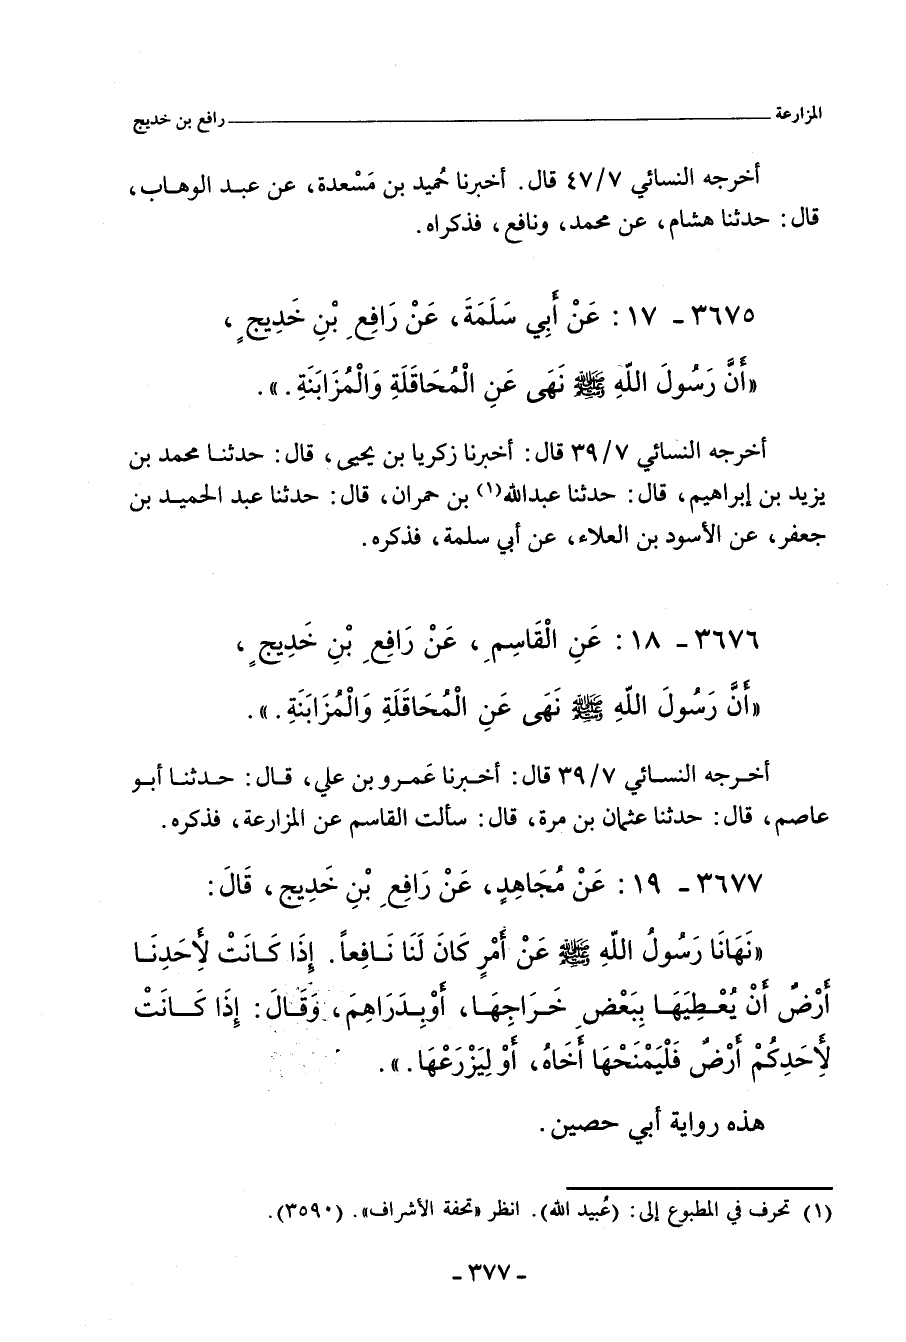 المزارعة ـــــــــــ رافع بن خديج
أخرجه النسائي ٤٧/٧ قال. أخبرنا حُميد بن مَسْعدة، عن عبد الوهاب،
قال: حدثنا هشام، عن محمد، ونافع، فذكراه.
٣٦٧٥ - ١٧: عَنْ أَبِي سَلَمَةَ، عَنْ رَافِعِ بْنِ خَدِيجٍ،
«أَنَّ رَسُولَ اللّهِ ﷺ نَهَى عَنِ الْمُحَاقَلَةِ وَالْمُزَابَنَةِ.».
أخرجه النسائي ٣٩/٧ قال: أخبرنا زكريا بن يحيى، قال: حدثنا محمد بن
يزيد بن إبراهيم، قال: حدثنا عبدالله(١) بن حمران، قال: حدثنا عبد الحميد بن
جعفر، عن الأسود بن العلاء، عن أبي سلمة، فذكره.
٣٦٧٦ - ١٨: عَنِ الْقَاسِمِ، عَنْ رَافِعِ بْنِ خَدِيجٍ،
«أَنَّ رَسُولَ اللّهِ ﷺ نَهَى عَنِ الْمُحَاقَلَةِ وَالْمُزَابَنَةِ.».
أخرجه النسائي ٣٩/٧ قال: أخبرنا عَمرو بن علي، قال: حدثنا أبو
عاصم، قال: حدثنا عثمان بن مرة، قال: سألت القاسم عن المزارعة، فذكره.
٣٦٧٧ - ١٩: عَنْ مُجَاهِدٍ، عَنْ رَافِعِ بْنِ خَدِيجٍ، قَالَ:
«نَهَانَا رَسُولُ اللّهِ ﷺ عَنْ أَمْرٍ كَانَ لَنَا نَافِعاً. إِذَا كَانَتْ لِأَحَدِنَا
أَرْضٌ أَنْ يُعْطِيَهَا بِبَعْضِ خَرَاجِهَا، أَوْ بِدَرَاهِمَ، وَقَالَ: إِذَا كَانَتْ
لِأَحَدِكُمْ أَرْضٌ فَلْيَمْنَحْهَا أَخَاهُ، أَوْ لِيَزْرَعْهَا.».
هذه رواية أبي حصين.
(١) تحرف في المطبوع إلى: (عُبيد الله). انظر «تحفة الأشراف». (٣٥٩٠).
- ٣٧٧ -